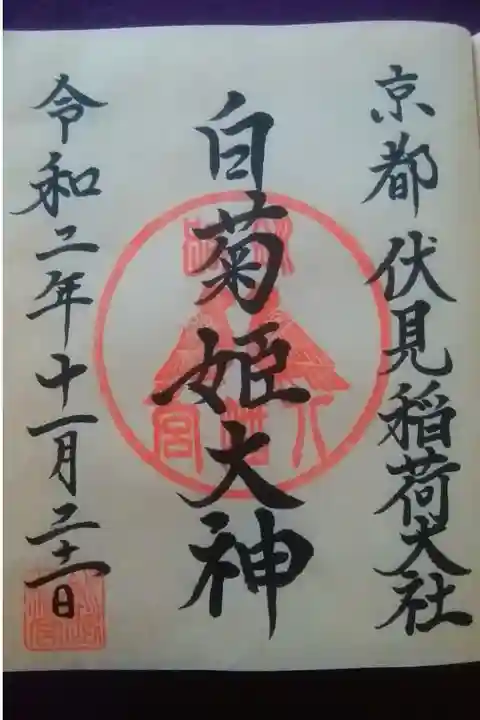 京都 伏見稲荷大社
白菊姫大神
令和二年十一月二十一日